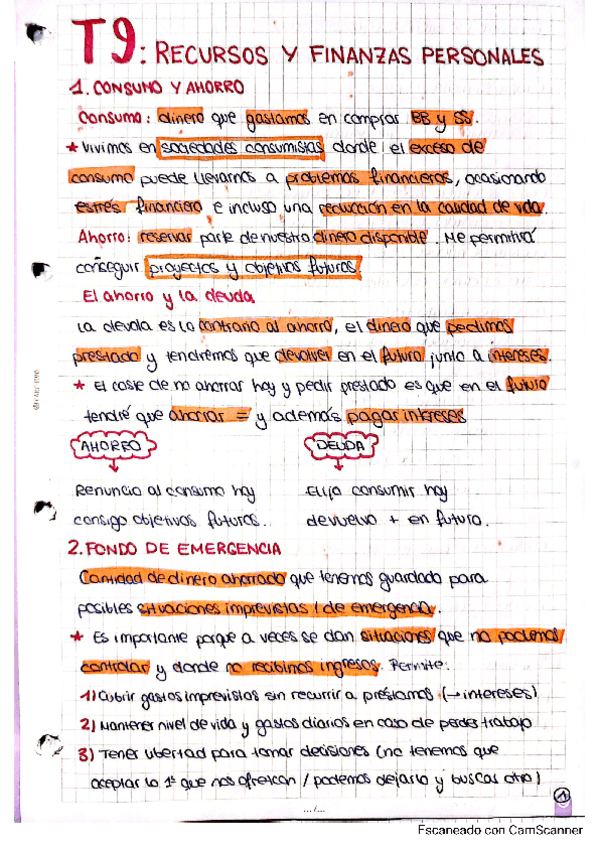 T9: RECURSOS Y FINANZAS PERSONALES
1. CONSUMO Y AHORRO
Consumo: dinero que gastamos en comprar BB y SS.
* Vivimos en sociedades consumistas donde el exceso de
consumo puede llevarnos a problemas financieros, ocasionando
estrés financiero e incluso una reducción en la calidad de vida.
Ahorro: reservar parte de nuestro dinero disponible. Me permitirá
conseguir proyectos y objetivos futuros
El ahorro y la deuda
La deuda es lo contrario al ahorro, el dinero que pedimos
prestado y tendremos que devolver en el futuro junto a intereses.
* El coste de no ahorrar hoy y pedir prestado es que en el futuro
tendré que ahorrar = y además pagar intereses
AHORRO DEUDA
Renuncio al consumo hoy Elijo consumir hoy
consigo objetivos futuros. devuelvo + en futuro.
2. FONDO DE EMERGENCIA
Cantidad de dinero ahorrado que tenemos guardado para
posibles situaciones imprevistas / de emergencia.
* Es importante porque a veces se dan situaciones que no podemos
controlar y donde no recibimos ingresos. Permite:
1) Cubrir gastos imprevistos sin recurrir a préstamos (→ intereses)
2) Mantener nivel de vida y gastos diarios en caso de perder trabajo
3) Tener libertad para tomar decisiones (no tenemos que
aceptar lo 1º que nos ofrezcan / podemos dejarlo y buscar otro)
1
.../...
Escaneado con CamScanner